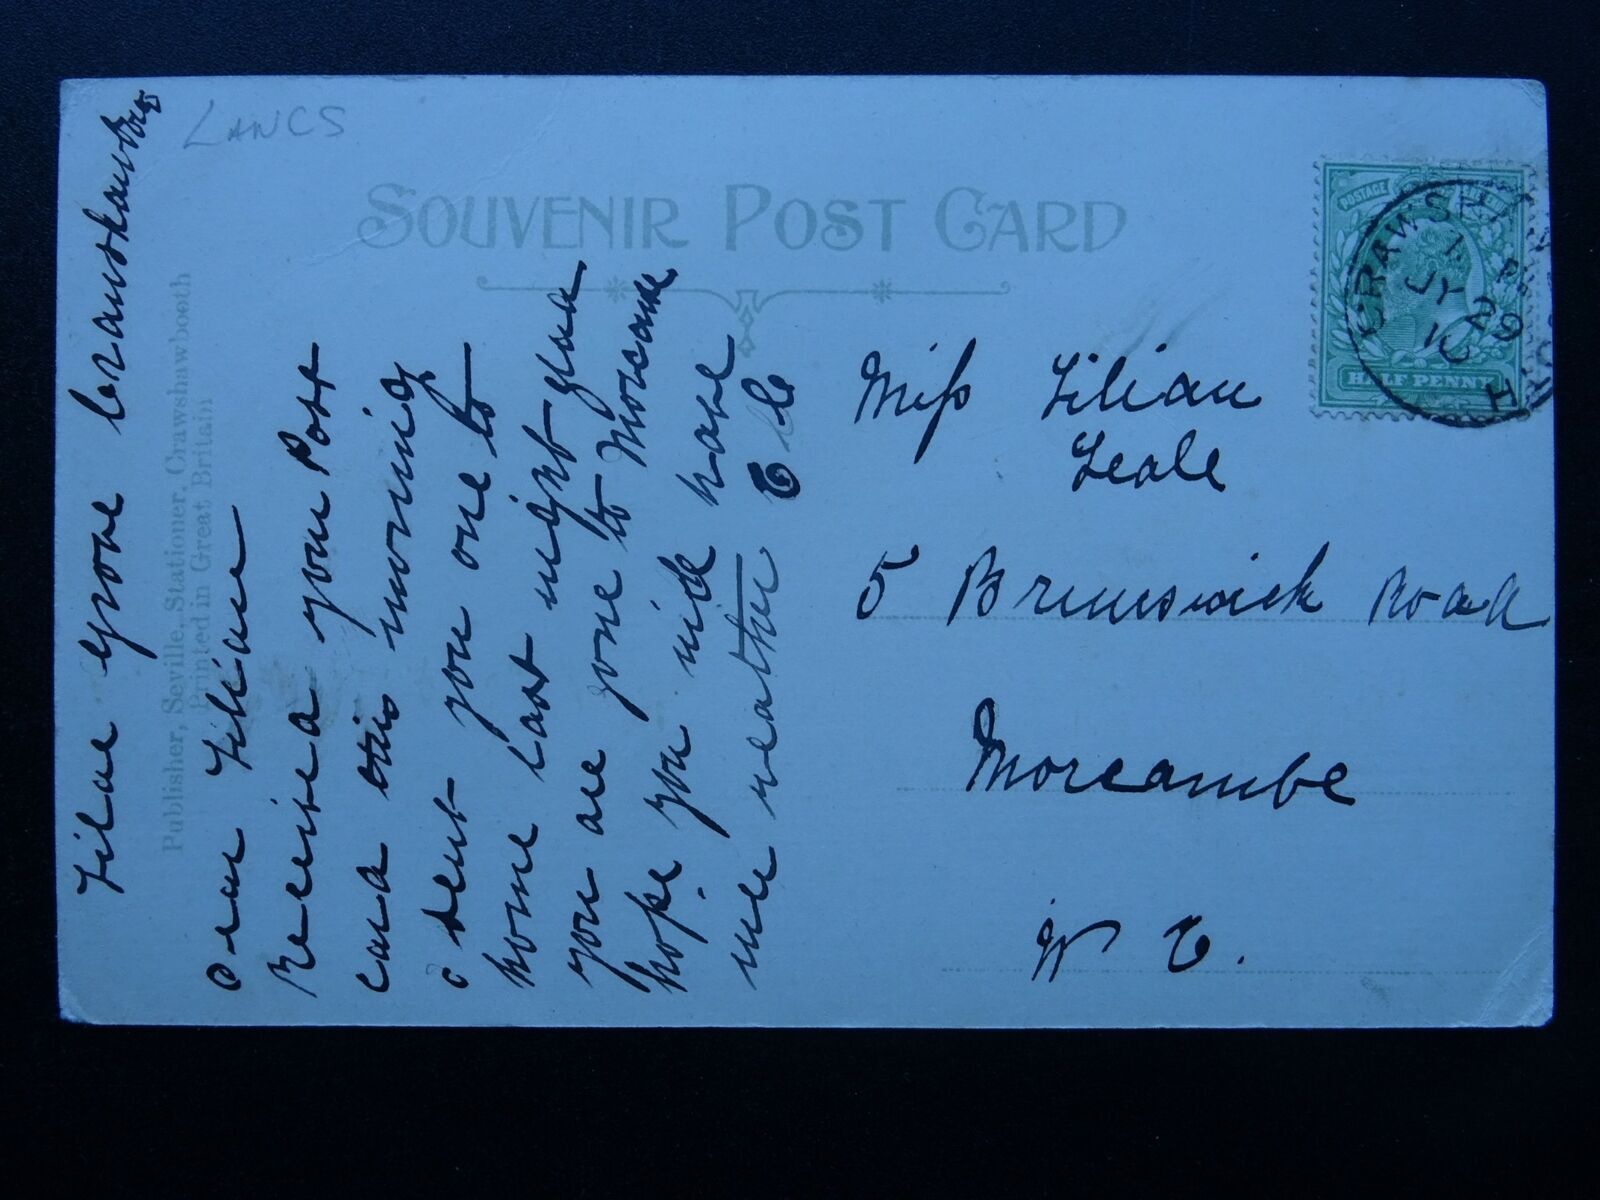 LANCS
SOUVENIR POST CARD
Publisher, Seville, Stationer, Crawshawbooth
Printed in Great Britain
Grove
Dear Lilian
Received your Post
Card this morning
I sent you one to
home last night glad
you are gone to Morcambe
hope you will have
nice weather
Miss Lilian
Leale
5 Brunswick Road
Morcambe
W E.
CRAWSHAWBOOTH
JY 29
10
POSTAGE
HALF PENNY